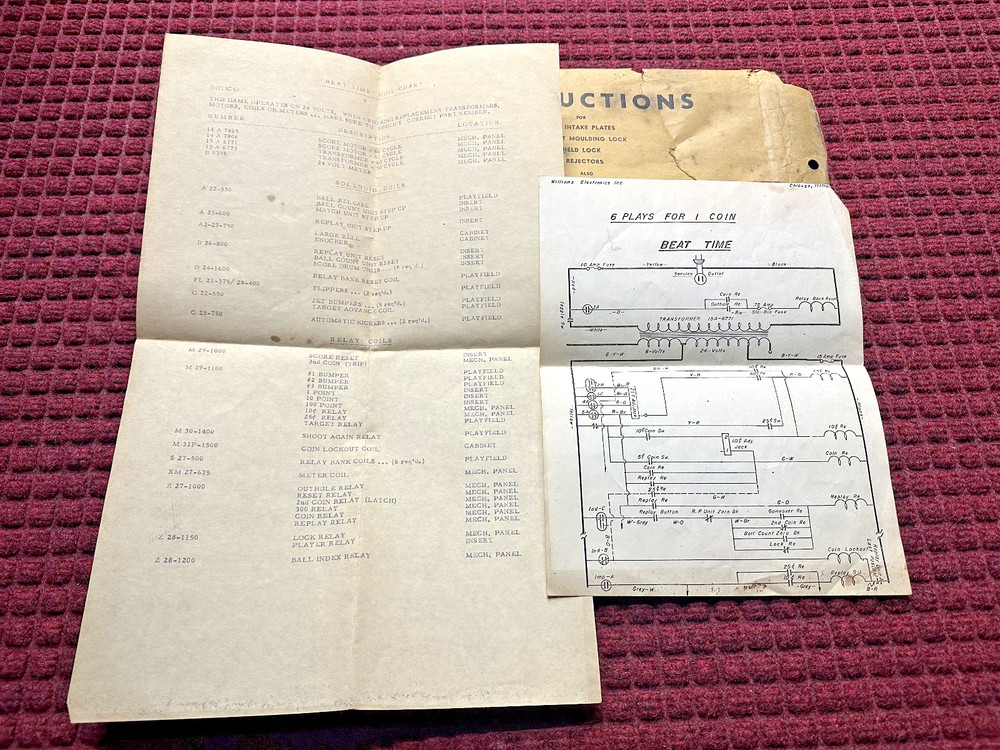 BEAT TIME - COIL CHART
NOTICE:
THIS GAME OPERATES ON 24 VOLTS. WHEN ORDERING REPLACEMENT TRANSFORMERS,
MOTORS, COILS OR METERS ... MAKE SURE TO SPECIFY CORRECT PART NUMBER.
NUMBER DESCRIPTION LOCATION
14 A 7805 SCORE MOTOR CYCLE MECH. PANEL
14 A 7806 SCORE MOTOR CYCLE MECH. PANEL
15 A 6771 TRANSFORMER CYCLE MECH. PANEL
15 A 6773 TRANSFORMER CYCLE MECH. PANEL
24 VOLT METER
SOLENOID COILS
A 22-550 BALL RELEASE PLAYFIELD
BALL COUNT UNIT STEP UP INSERT
MATCH UNIT STEP UP INSERT
A 23-600 REPLAY UNIT STEP UP INSERT
A2-23-750 LARGE BELL CABINET
KNOCKER CABINET
B 26-800 REPLAY UNIT RESET INSERT
BALL COUNT UNIT RESET INSERT
SCORE DRUM UNITS INSERT
D 24-1600 RELAY BANK RESET COIL PLAYFIELD
FL 21-375/28-400 FLIPPERS ... (2 req'd.) PLAYFIELD
G 22-550 JET BUMPERS ... req'd.) PLAYFIELD
TARGET ADVANCE COIL PLAYFIELD
G 23-750 AUTOMATIC KICKERS ... (2 req'd.) PLAYFIELD
RELAY COILS
M 29-1000 SCORE RESET INSERT
2nd COIN (TRIP) MECH. PANEL
M 29-1100 #1 BUMPER PLAYFIELD
#2 BUMPER PLAYFIELD
#3 BUMPER PLAYFIELD
1 POINT INSERT
10 POINT INSERT
100 POINT INSERT
10¢ RELAY MECH. PANEL
25¢ RELAY MECH. PANEL
TARGET RELAY PLAYFIELD
M 30-1400 SHOOT AGAIN RELAY PLAYFIELD
M 31F-1500 COIN LOCKOUT COIL CABINET
S 27-500 RELAY BANK COILS ... (6 req'd.) PLAYFIELD
XM 27-675 METER COIL MECH. PANEL
Z 27-1000 OUTHOLE RELAY MECH. PANEL
RESET RELAY MECH. PANEL
2nd COIN RELAY (LATCH) MECH. PANEL
300 RELAY MECH. PANEL
COIN RELAY MECH. PANEL
REPLAY RELAY MECH. PANEL
Z 28-1150 LOCK RELAY MECH. PANEL
PLAYER RELAY INSERT
Z 28-1200 BALL INDEX RELAY MECH. PANEL
UCTIONS
FOR
INTAKE PLATES
T MOULDING LOCK
IELD LOCK
REJECTORS
ALSO
Williams Electronics Inc.
Chicago, Illino
6 PLAYS FOR 1 COIN
BEAT TIME
10 Amp Fuse
-Yellow-
-Black-
Service Outlet
Coin Re
Outhole Re
Relay Bank
Slo-Blo Fuse
-White-
TRANSFORMER 15A-6771
6-Volts
24-Volts
G-Y-W
15 Amp Fuse
25¢ Sw
Y-B
10¢ Coin Sw.
10¢ Adj. Jack
10¢ Re
5¢ Coin Sw.
G-W
Coin Re
Coin Re
Replay Re
25¢ Re
G-W
Replay Re
Replay Re
G-O
Ind-C
Replay Button
R.P. Unit Zero Sw
Gameover Re
W-Grey
W-O
W-Br
2nd Coin Re
Ball Count Zero Sw
Lock Re
Ind-B
Coin Lockout
25¢ Re
Imp-A
10¢ Re
Replay S.U.
Grey-W
-Grey-
B-R